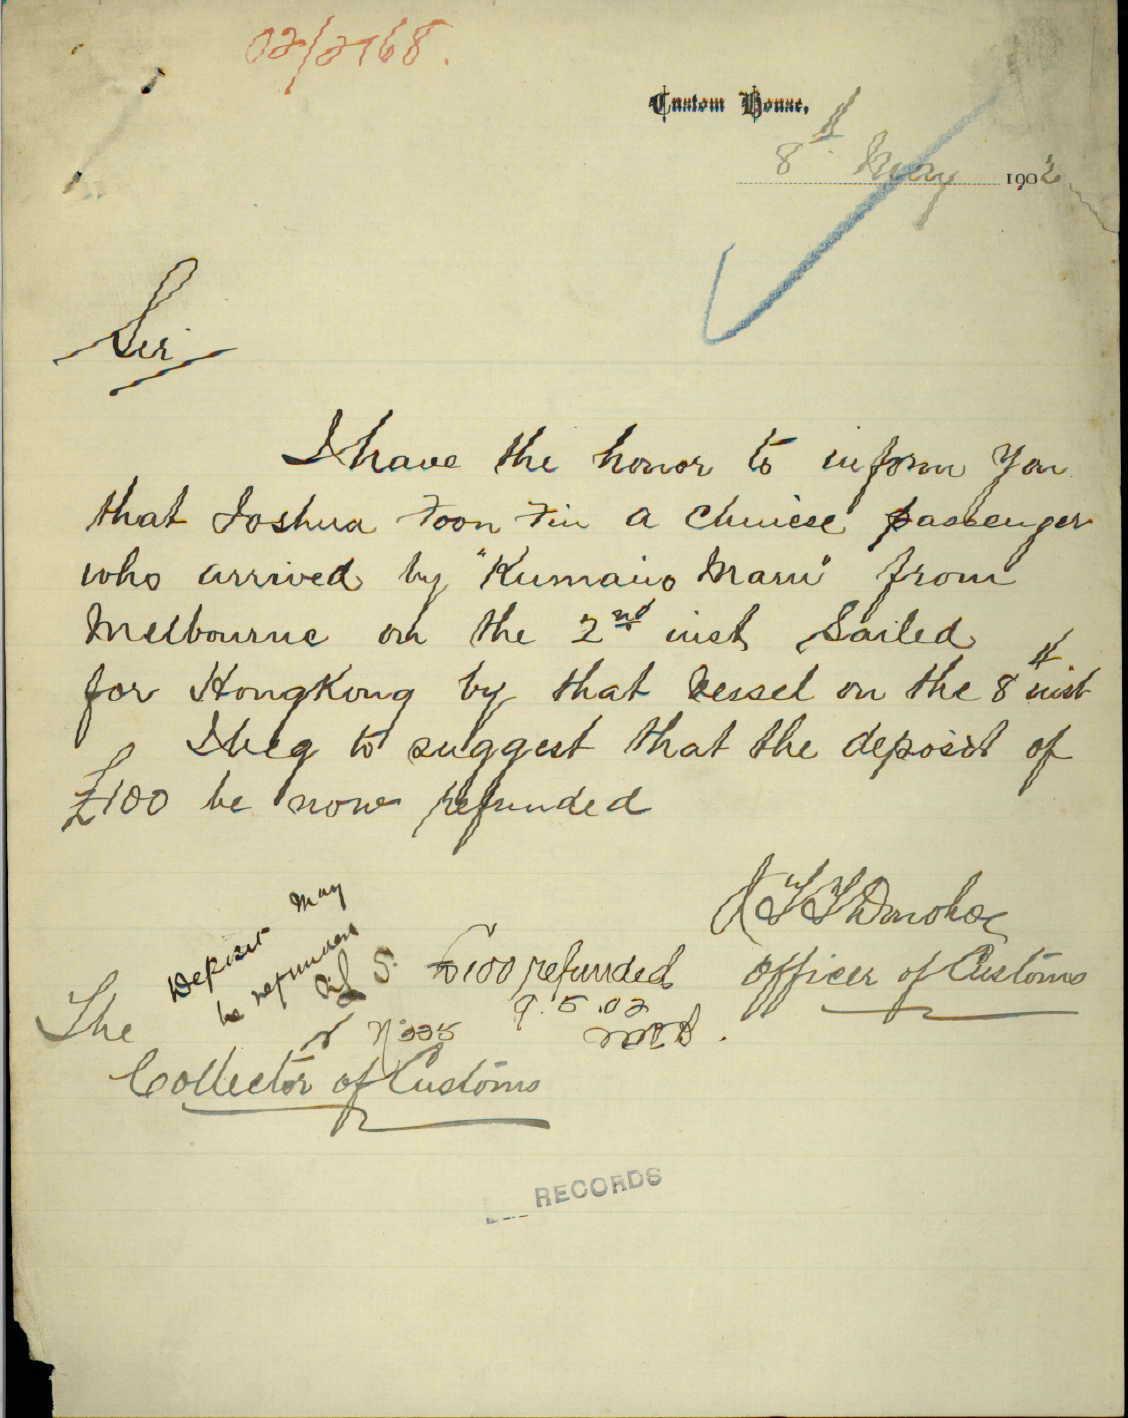 02/2768.
Custom House,
8th May 1902
Sir
I have the honor to inform you
that Joshua Foon Fin a Chinese passenger
who arrived by "Kumano Maru" from
Melbourne on the 2nd inst, Sailed
for HongKong by that vessel on the 8th inst
I beg to suggest that the deposit of
£100 be now refunded
Donohoe
Officer of Customs
Deposit may
be refunded
£100 refunded
9.5.02
No 335
The
Collector of Customs
RECORDS